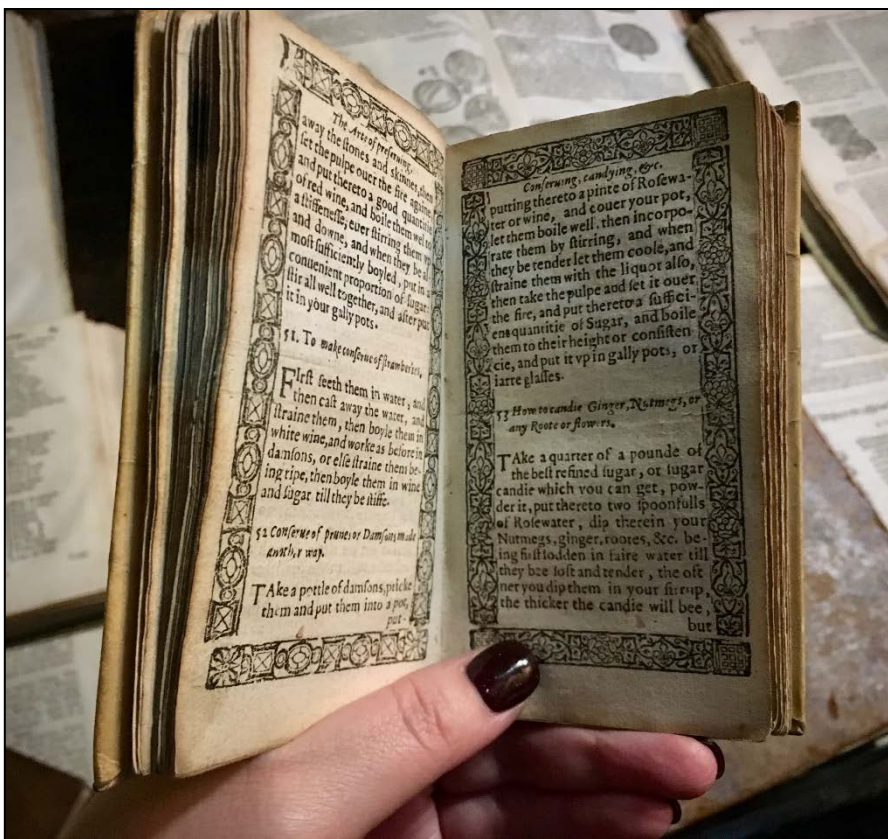 The Arte of preseruing,
away the stones and skinnes, then
set the pulpe ouer the fire againe,
and put thereto a good quantitie
of red wine, and boile them well to
a stiffenesse, euer stirring them vp
and downe, and when they be al-
most sufficiently boyled, put in a
conuenient proportion of sugar:
stir all well together, and after put
it in your gally pots.
51. To make conserue of strawberies.
FIrst seeth them in water, and
then cast away the water, and
straine them, then boyle them in
white wine, and worke as before in
damsons, or else straine them be-
ing ripe, then boyle them in wine
and sugar till they be stiffe.
52 Conserue of prunes or Damsons made
another way.
TAke a pottle of damsons, pricke
them and put them into a pot,
put-
Conseruing, candying, &c.
putting thereto a pinte of Rosewa-
ter or wine, and couer your pot,
let them boile well, then incorpo-
rate them by stirring, and when
they be tender let them coole, and
straine them with the liquor also,
then take the pulpe and set it ouer
the fire, and put thereto a suffici-
ent quantitie of Sugar, and boile
them to their height or consisten-
cie, and put it vp in gally pots, or
iarre glasses.
53 How to candie Ginger, Nutmegs, or
any Roote or flowers.
TAke a quarter of a pounde of
the best refined sugar, or sugar
candie which you can get, pow-
der it, put thereto two spoonfulls
of Rosewater, dip therein your
Nutmegs, ginger, rootes, &c. be-
ing first sodden in faire water till
they bee soft and tender, the oft
ner you dip them in your sirrup,
the thicker the candie will bee,
but